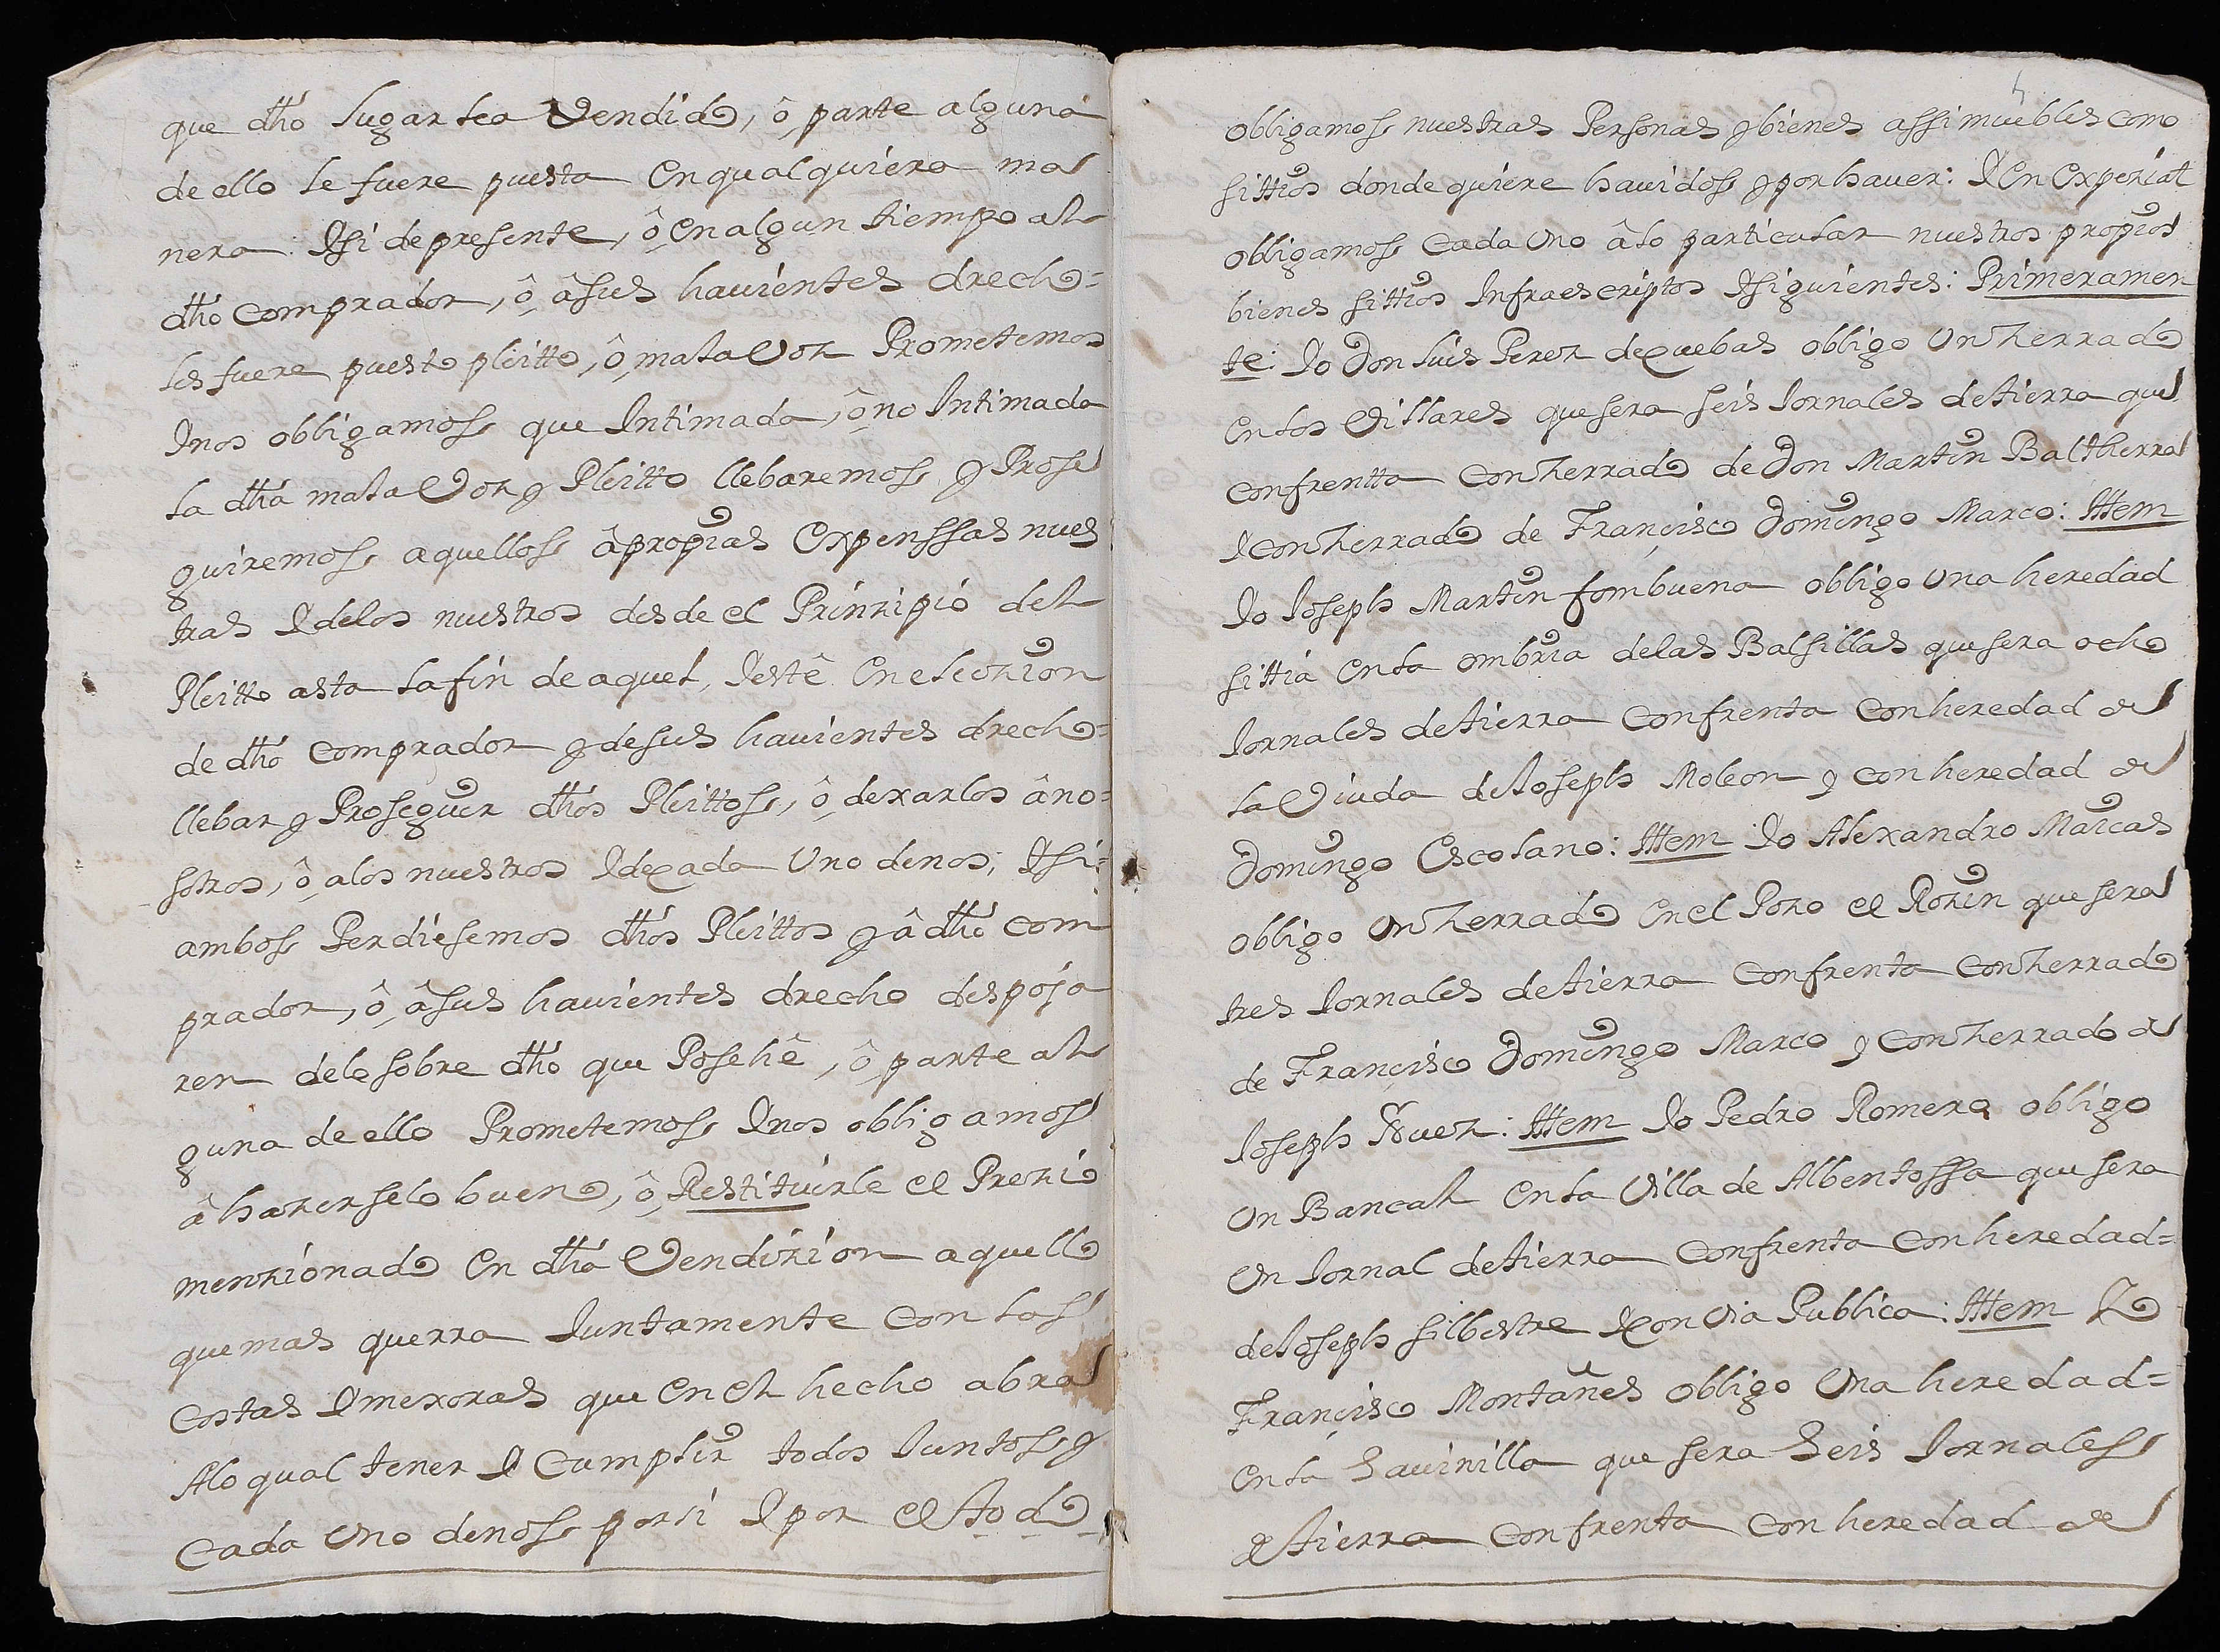 que dho lugar sea Vendido, ô, parte alguna
de ello le fuere puesta en qualquiera ma
nera: Y si de presente, ô, en algun tiempo al
dho comprador, ô, â sus havientes drecho=
les fuere puesto pleitto, ô, mala Voz Prometemos
Y nos obligamos que Intimada, ô, no Intimada
la dha mala Voz y Pleitto llebaremos y Prose
guiremos aquellos â propias Expenssas nues
tras Y delos nuestros desde el Prinzipio del
Pleitto asta la fin de aquel, Y estê en eleczion
de dho comprador y de sus havientes drecho=
llebar y Proseguir dhos Pleittos, ô, dexarlos â no=
sotros, ô, a los nuestros Y de cada Uno de nos; Y si=
ambos Perdiesemos dhos Pleittos y â dho com
prador, ô, â sus havientes drecho despoja
ren delo sobre dho que Posehê, ô, parte al
guna de ello Prometemos Y nos obligamos
â hazerselo bueno, ô, Restituirle el Prezio
menzionado en dha Vendizion aquello
que mas querra Juntamente con las
costas Y mexoras que en el hecho abra
A lo qual tener Y Cumplir todos Juntos y
Cada Uno de nos por si Y por el todo
obligamos nuestras Personas y bienes assi muebles como
sittios donde quiere havidos y por haver: Y en Expeział
obligamos Cada Uno â lo particular nuestros propios
bienes sittios Infraescriptos Y siguientes: Primeramen
te: Yo Don Luis Perez de Cuebas obligo Un Zerrado
en los Villares que sera seis Jornales de tierra que
confrentta con Zerrado de Don Martin Baltherra
Y con Zerrado de Françisco Domingo Marco: Ittem
Yo Joseph Martin fombuena obligo Una heredad
sittia en la ombria de las Balsillas que sera ocho
Jornales de tierra confrenta con heredad de
la Viuda de Joseph Moleon y con heredad de
Domingo Escolano: Ittem Yo Alexandro Marcas
obligo Un Zerrado en el Pozo el Rozin que sera
tres Jornales de tierra confrenta con Zerrado
de Françisco Domingo Marco y con Zerrado de
Joseph Ñuez: Ittem Yo Pedro Romero obligo
Un Bancal en la Villa de Albentossa que sera
Un Jornal de tierra confrenta con heredad=
de Joseph silbestre Y con Via Publica: Ittem Yo
Françisco Montañes obligo Una heredad=
en la Savinilla que sera Seis Jornales
de tierra confrenta con heredad de